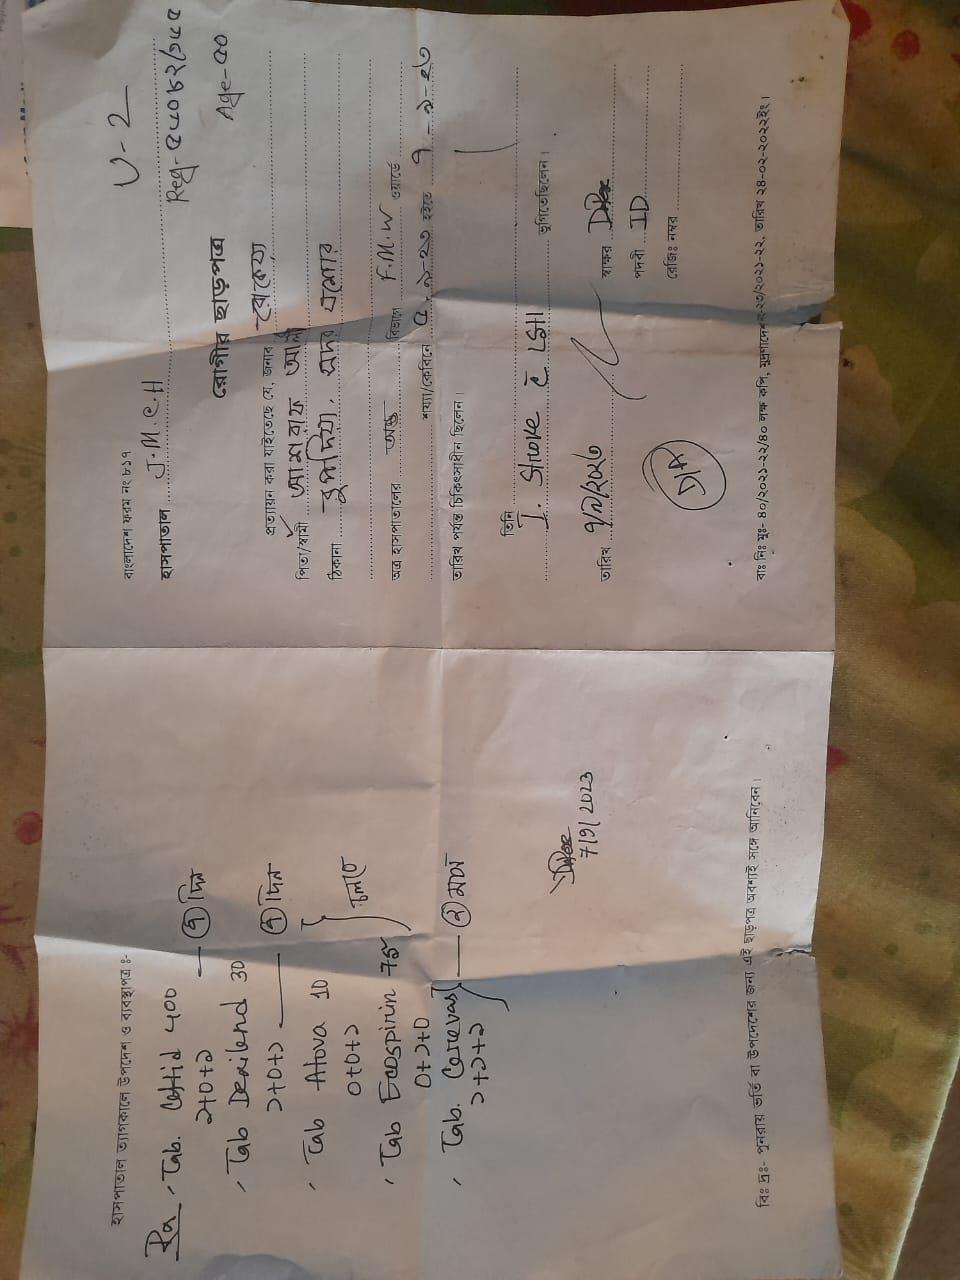 বাংলাদেশ ফরম নং ৮১৭
U-2
হাসপাতাল J.M.C.H
Reg-৫৮০৮২/১৮৫
রোগীর ছাড়পত্র
Age-৫০
প্রত্যায়ন করা যাইতেছে যে, জনাব
পিতা/স্বামী আশরাফ আলী
ঠিকানা সদর যশোর
অত্র হাসপাতালের অত্র বিভাগে F.M.W ওয়ার্ডে
শয্যা/কেবিনে ৫-৯-২৩ হইতে ৭-৯-২৩
তারিখ পর্যন্ত চিকিৎসাধীন ছিলেন।
তিনি
I. Stroke c̄ LSH ভূগিতেছিলেন।
তারিখ ৭/৯/২০২৩
স্বাক্ষর
পদবী ID
রেজিঃ নম্বর
বাঃ নিঃ মুঃ- ৪০/২০২১-২২/৪০ লক্ষ কপি, মুদ্রণাদেশ নং-২৩/২০২১-২২, তারিখ ২৪-০২-২০২২ইং।
হাসপাতাল ত্যাগকালে উপদেশ ও ব্যবস্থাপত্র ঃ-
Rx
Tab. 400
১+০+১ — ৭ দিন
Tab 30
১+০+১ — ৭ দিন
Tab Atova 10
০+০+১
চলবে
Tab Ecosprin 75
০+১+০
Tab. Cerevas
১+১+১ — ২ মাস
7/9/2023
বিঃ দ্রঃ- পুনরায় ভর্তি বা উপদেশের জন্য এই ছাড়পত্র অবশ্যই সঙ্গে আনিবেন।